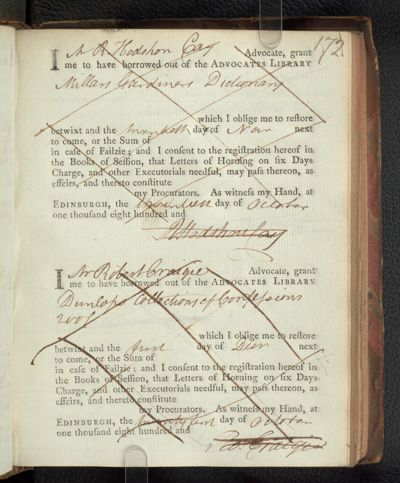 172
I Mr R. Hodshon Cay Advocate, grant
me to have borrowed out of the ADVOCATES LIBRARY
Millars Gardiners Dictionary
which I oblige me to restore
betwixt and the day of Novr next
to come, or the Sum of
in case of Failzie; and I consent to the registration hereof in
the Books of Session, that Letters of Horning on six Days
Charge, and other Executorials needful, may pass thereon, as
effeirs, and thereto constitute
my Procurators. As witness my Hand, at
EDINBURGH, the day of October
one thousand eight hundred and
R Hodshon Cay
I Mr Robert Craigie Advocate, grant
me to have borrowed out of the ADVOCATES LIBRARY
Dunlops Collections of Confessions
2 vols
which I oblige me to restore
betwixt and the first day of Decr next
to come, or the Sum of
in case of Failzie; and I consent to the registration hereof in
the Books of Session, that Letters of Horning on six Days
Charge, and other Executorials needful, may pass thereon, as
effeirs, and thereto constitute
my Procurators. As witness my Hand, at
EDINBURGH, the twenty first day of October
one thousand eight hundred and
Ro. Craigie